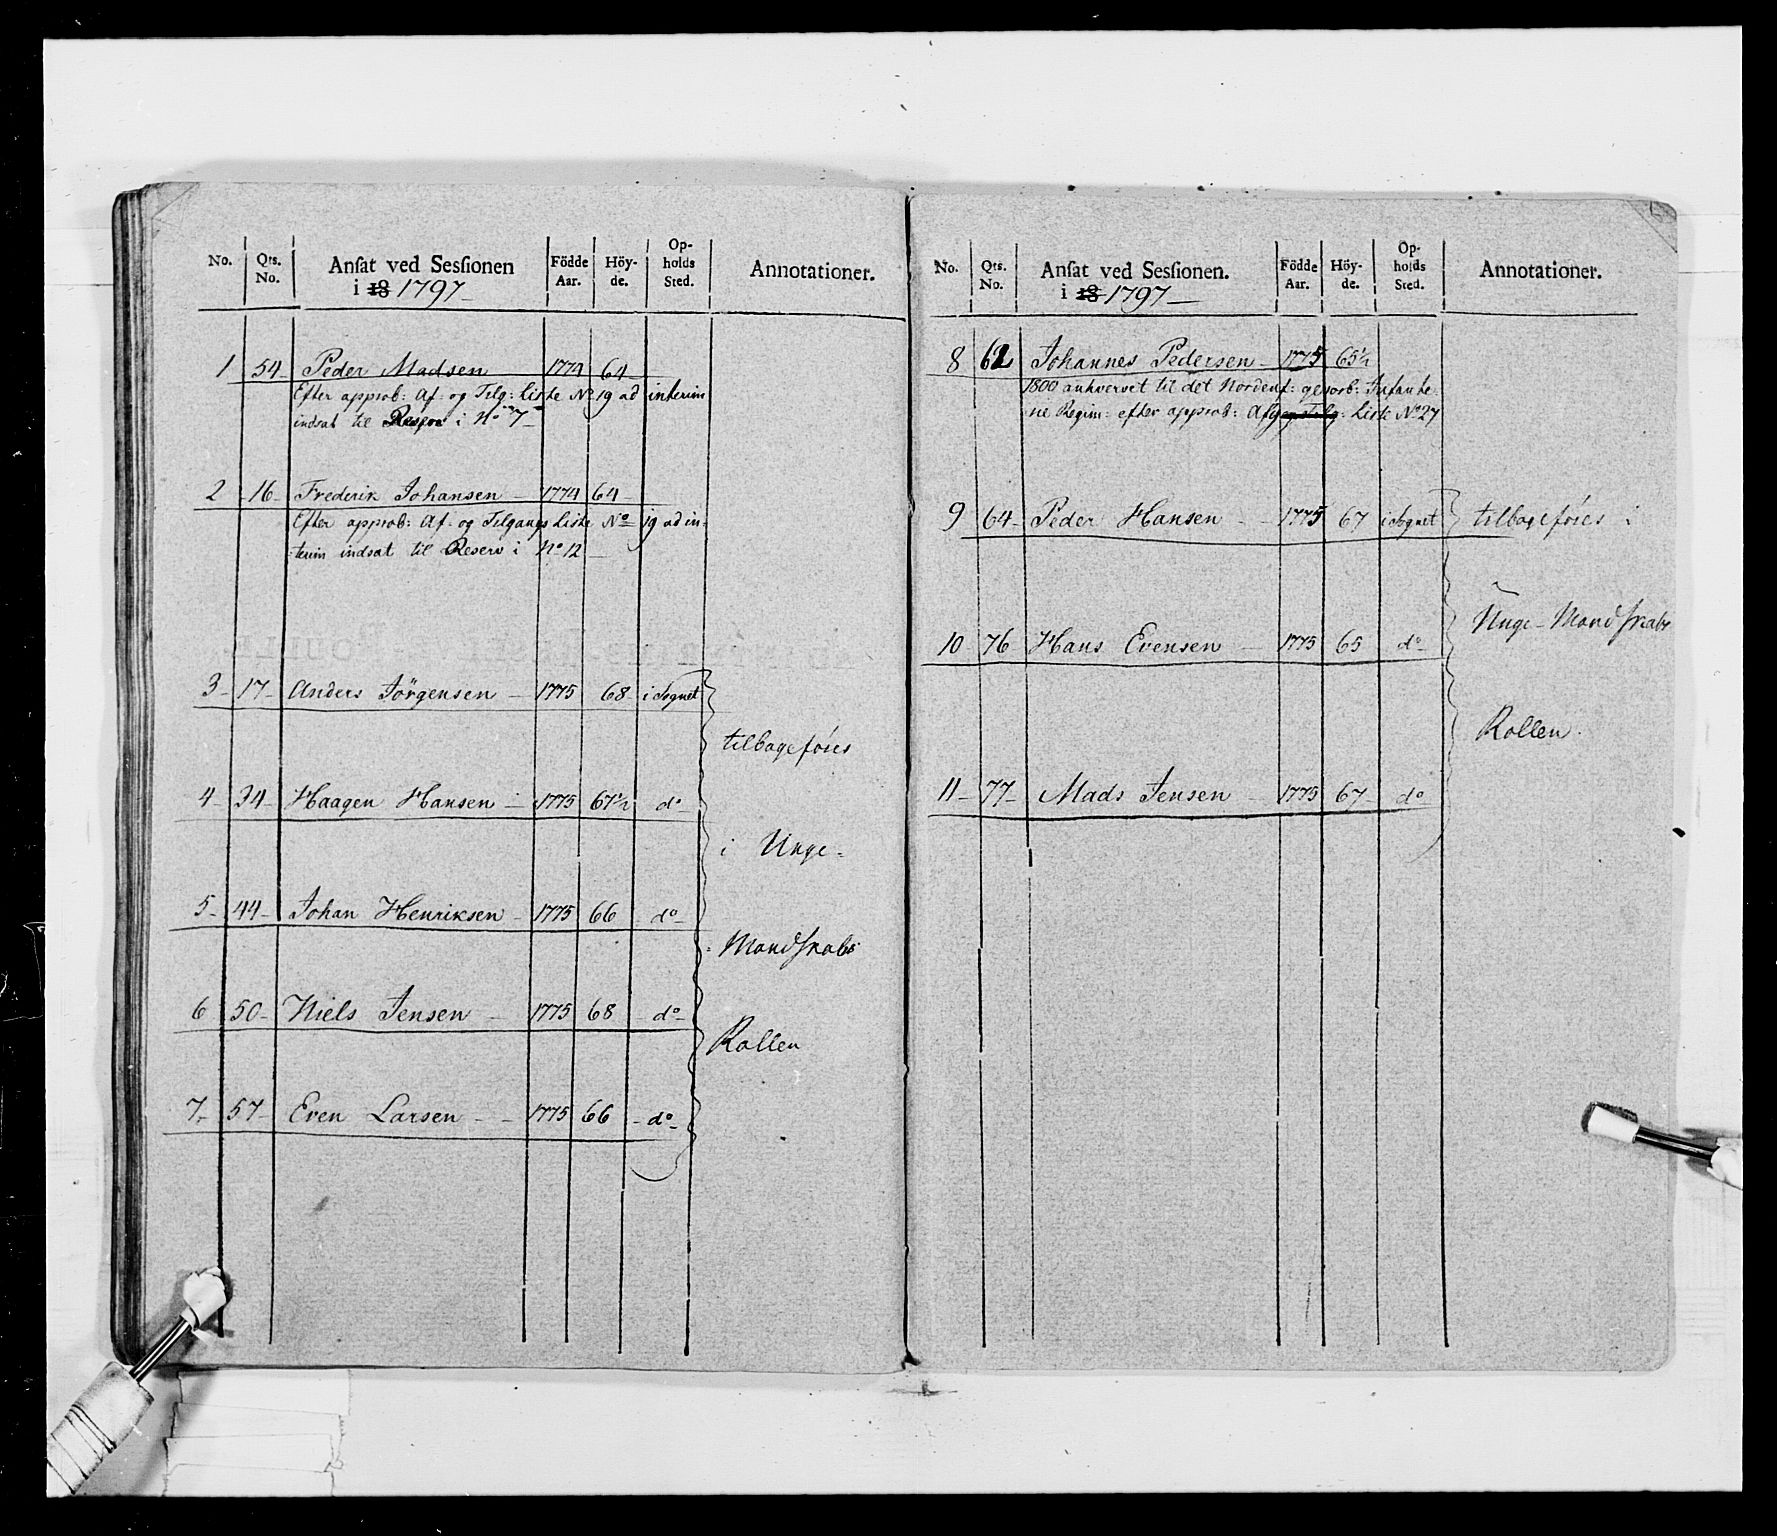 No. Qts. No. Ansat ved Sessionen i 18 1797 Födde Aar. Höyde. Opholds Sted. Annotationer.
1 54 Peder Madsen 1774 64
Efter approb: Af- og Tilg: Liste No 19 ad interim
indsat til Reserv i No 7
2 16 Frederik Johansen 1774 64
Efter approb: Af- og Tilgangs Liste No 19 ad in-
terim indsat til Reserv i No 12
3 17 Anders Jörgensen 1775 68 i Sognet
tilbageföies
4 34 Haagen Hansen 1775 67½ do
i Unge-
5 44 Johan Henriksen 1775 66 do
Mandskabs
6 50 Niels Jensen 1775 68 do
Rollen
7 57 Even Larsen 1775 66 do
No. Qts. No. Ansat ved Sessionen. i 18 1797 Födde Aar. Höyde. Opholds Sted. Annotationer.
8 62 Johannes Pedersen 1775 65½
1800 anhvervet til det Nordenf: gevorb: Infante
rie Regim: efter approb: Afg og Tilg: Liste No 27
9 64 Peder Hansen 1775 67 i Sognet tilbageföies i
Unge-Mandskabs
10 76 Hans Evensen 1775 65 do
Rollen
11 77 Mads Jensen 1775 67 do